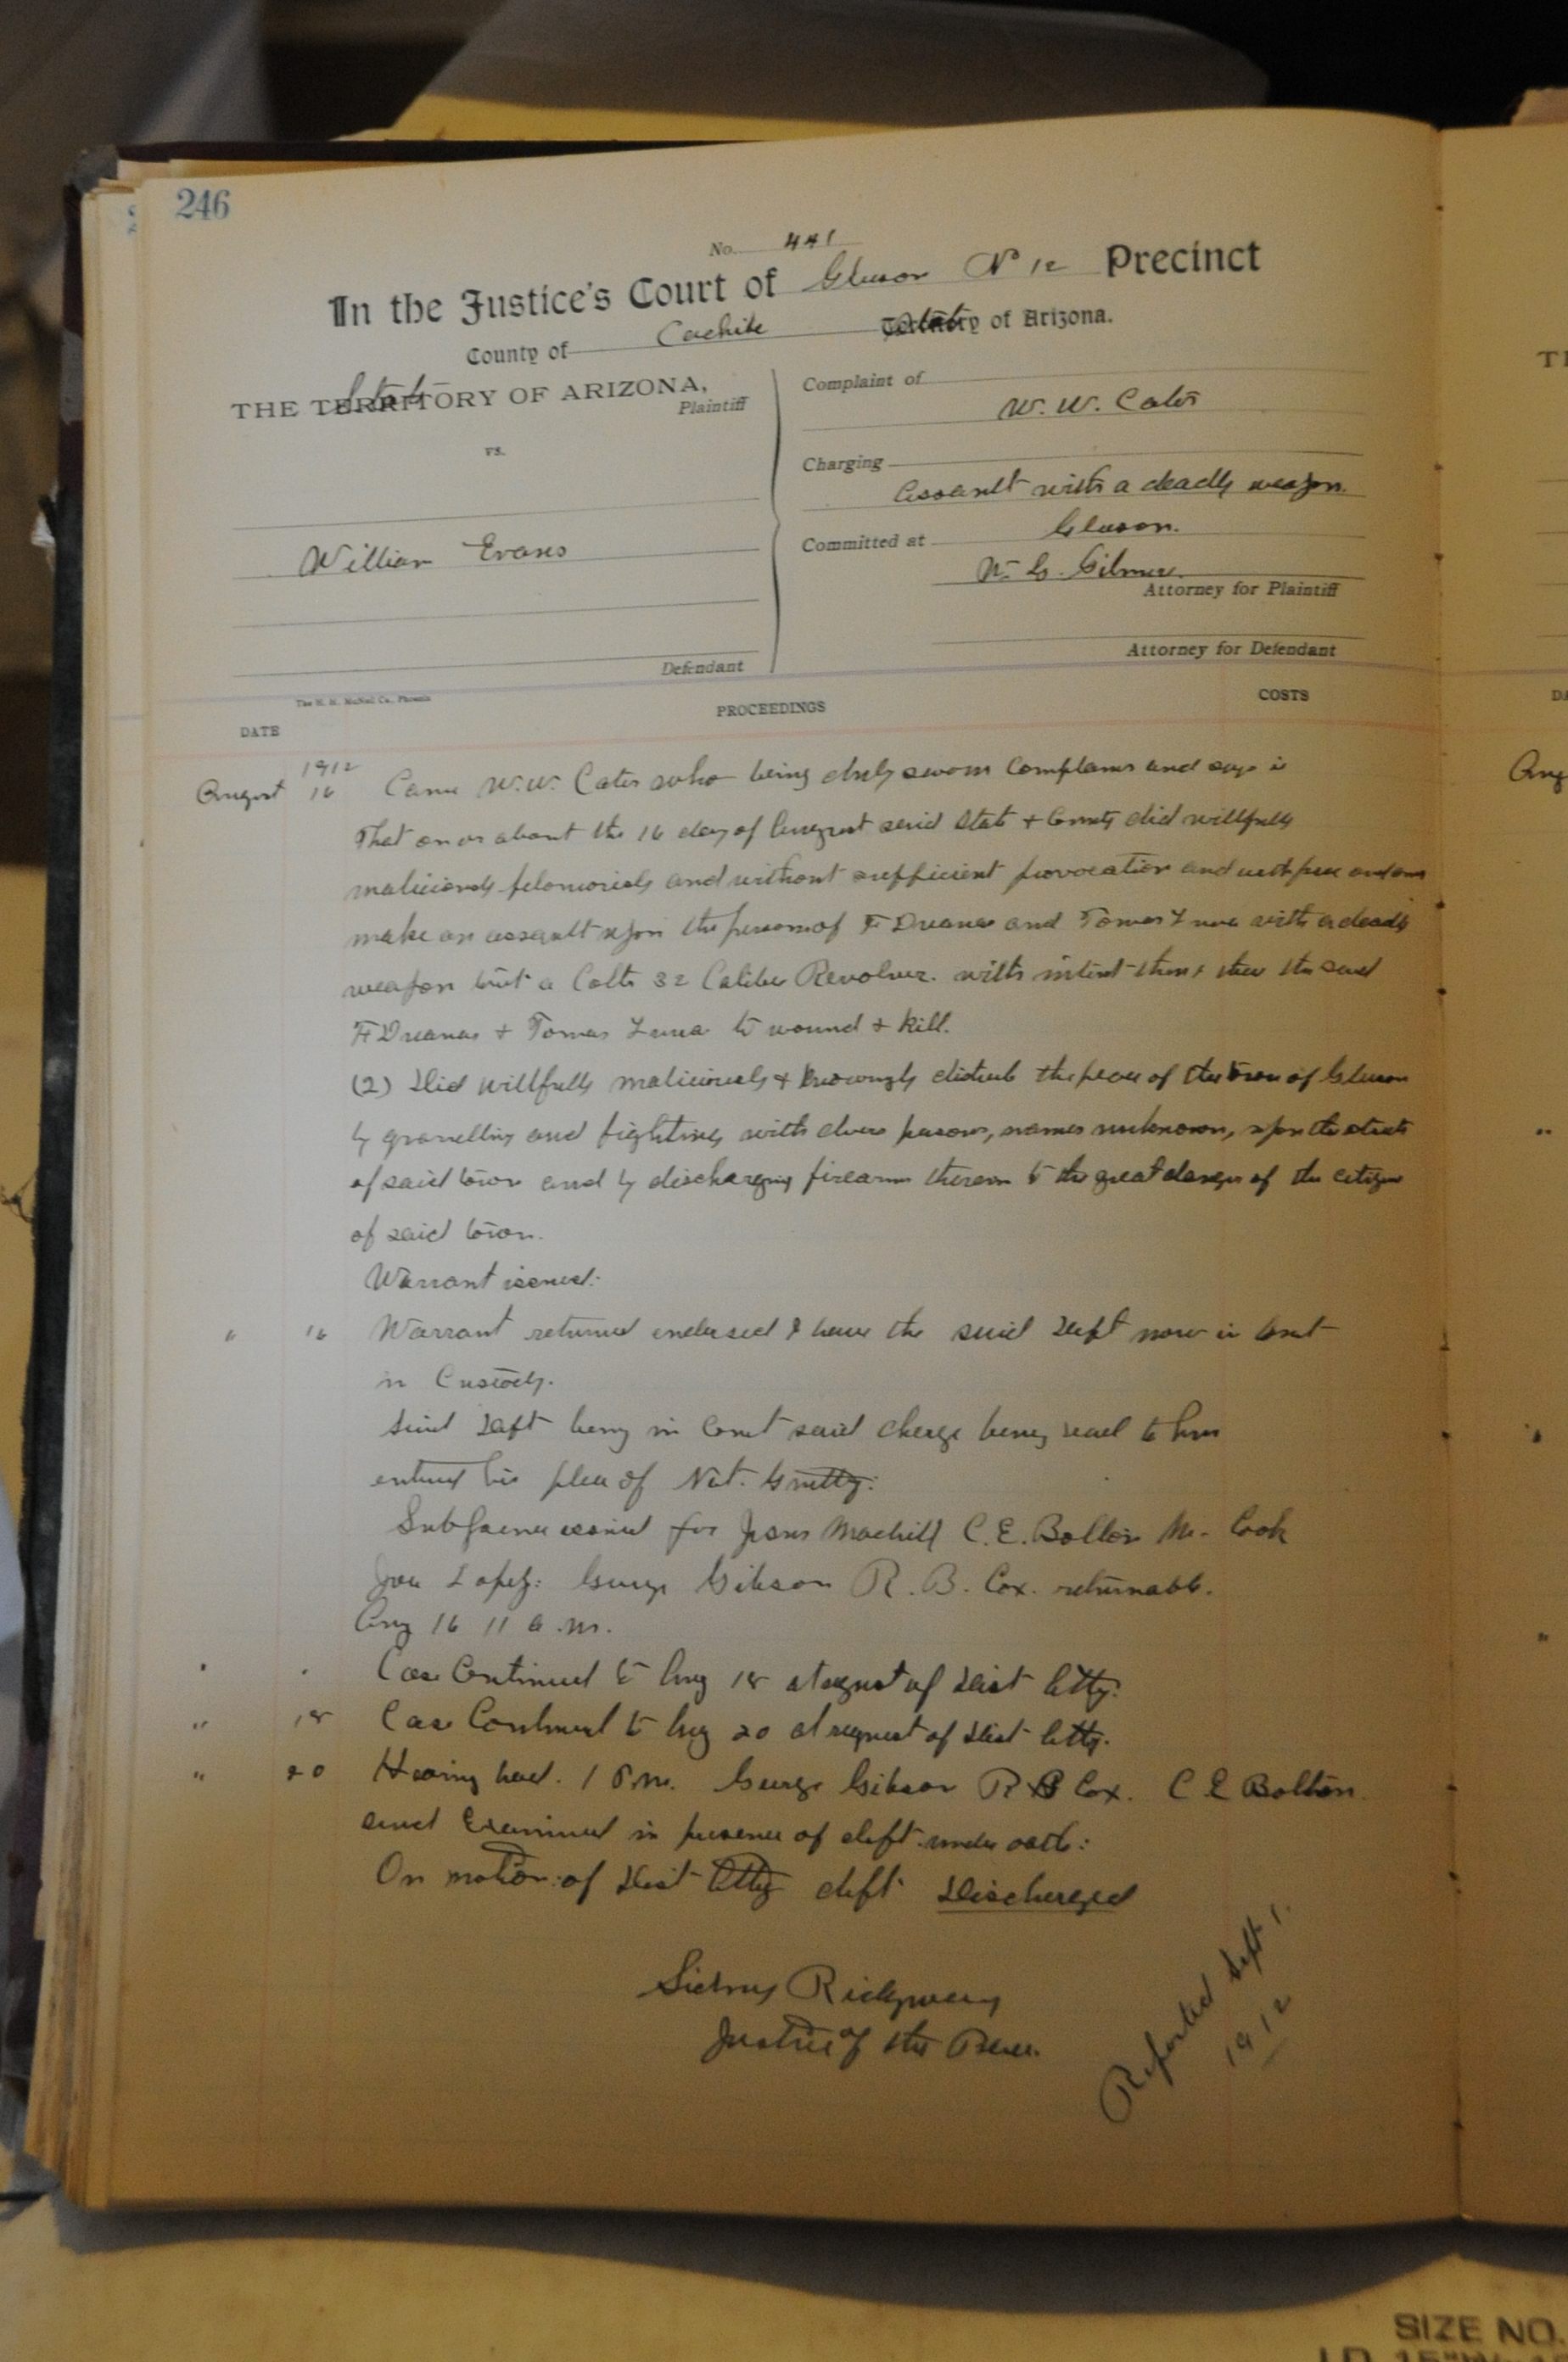 246
No. 441
In the Justice's Court of Gleeson No 12 Precinct
County of Cochise State of Arizona.
THE State OF ARIZONA,
Plaintiff
vs.
William Evans
Defendant
Complaint of
W. W. Cates
Charging
Assault with a deadly weapon.
Committed at Gleeson.
W. G. Gilmore
Attorney for Plaintiff
Attorney for Defendant
The H. H. McNeil Co., Phoenix
DATE PROCEEDINGS COSTS
1912
August 16 Came W. W. Cates who being duly sworn complains and says
That on or about the 16 day of August said State & County did willfully
maliciously feloniously and without sufficient provocation and
make an assault upon the person of F and Tomas Luna with a deadly
weapon a Colts 32 Calibre Revolver. with intent then & there the said
F & Tomas Luna to wound & kill.
(2) Did willfully maliciously & knowingly disturb the peace of the town of Gleeson
by quarelling and fighting with divers persons, names unknown, upon the streets
of said town and by discharging firearms thereon to the great danger of the citizens
of said town.
Warrant issued.
" 16 Warrant returned endorsed I have the said Deft now in Court
in Custody.
Said Deft being in Court said charge being read to him
entered his plea of Not. Guilty:
Subpoena issued for C. E. Bolton M. Cook
Joe Lopez: George Gibson R. B. Cox. returnable.
Aug 16 11 a.m.
Case Continued to Aug 18 at request of Dist Atty.
" 18 Case Continued to Aug 20 at request of Dist Atty.
" 20 Hearing had. 1 P.m. George Gibson R B Cox. C E Bolton
and Examined in presence of deft. under oath:
On motion of Dist Atty deft Discharged
Sidney Ridgway
Justice of the Peace.
Reported Sept 1.
1912
Aug
SIZE NO.